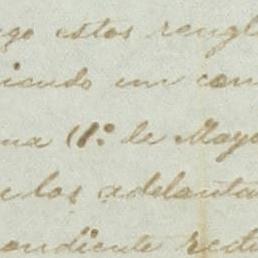 go estos rengl
iendo un com
na (1º de Mayo
n los adelanta
pondiente rect